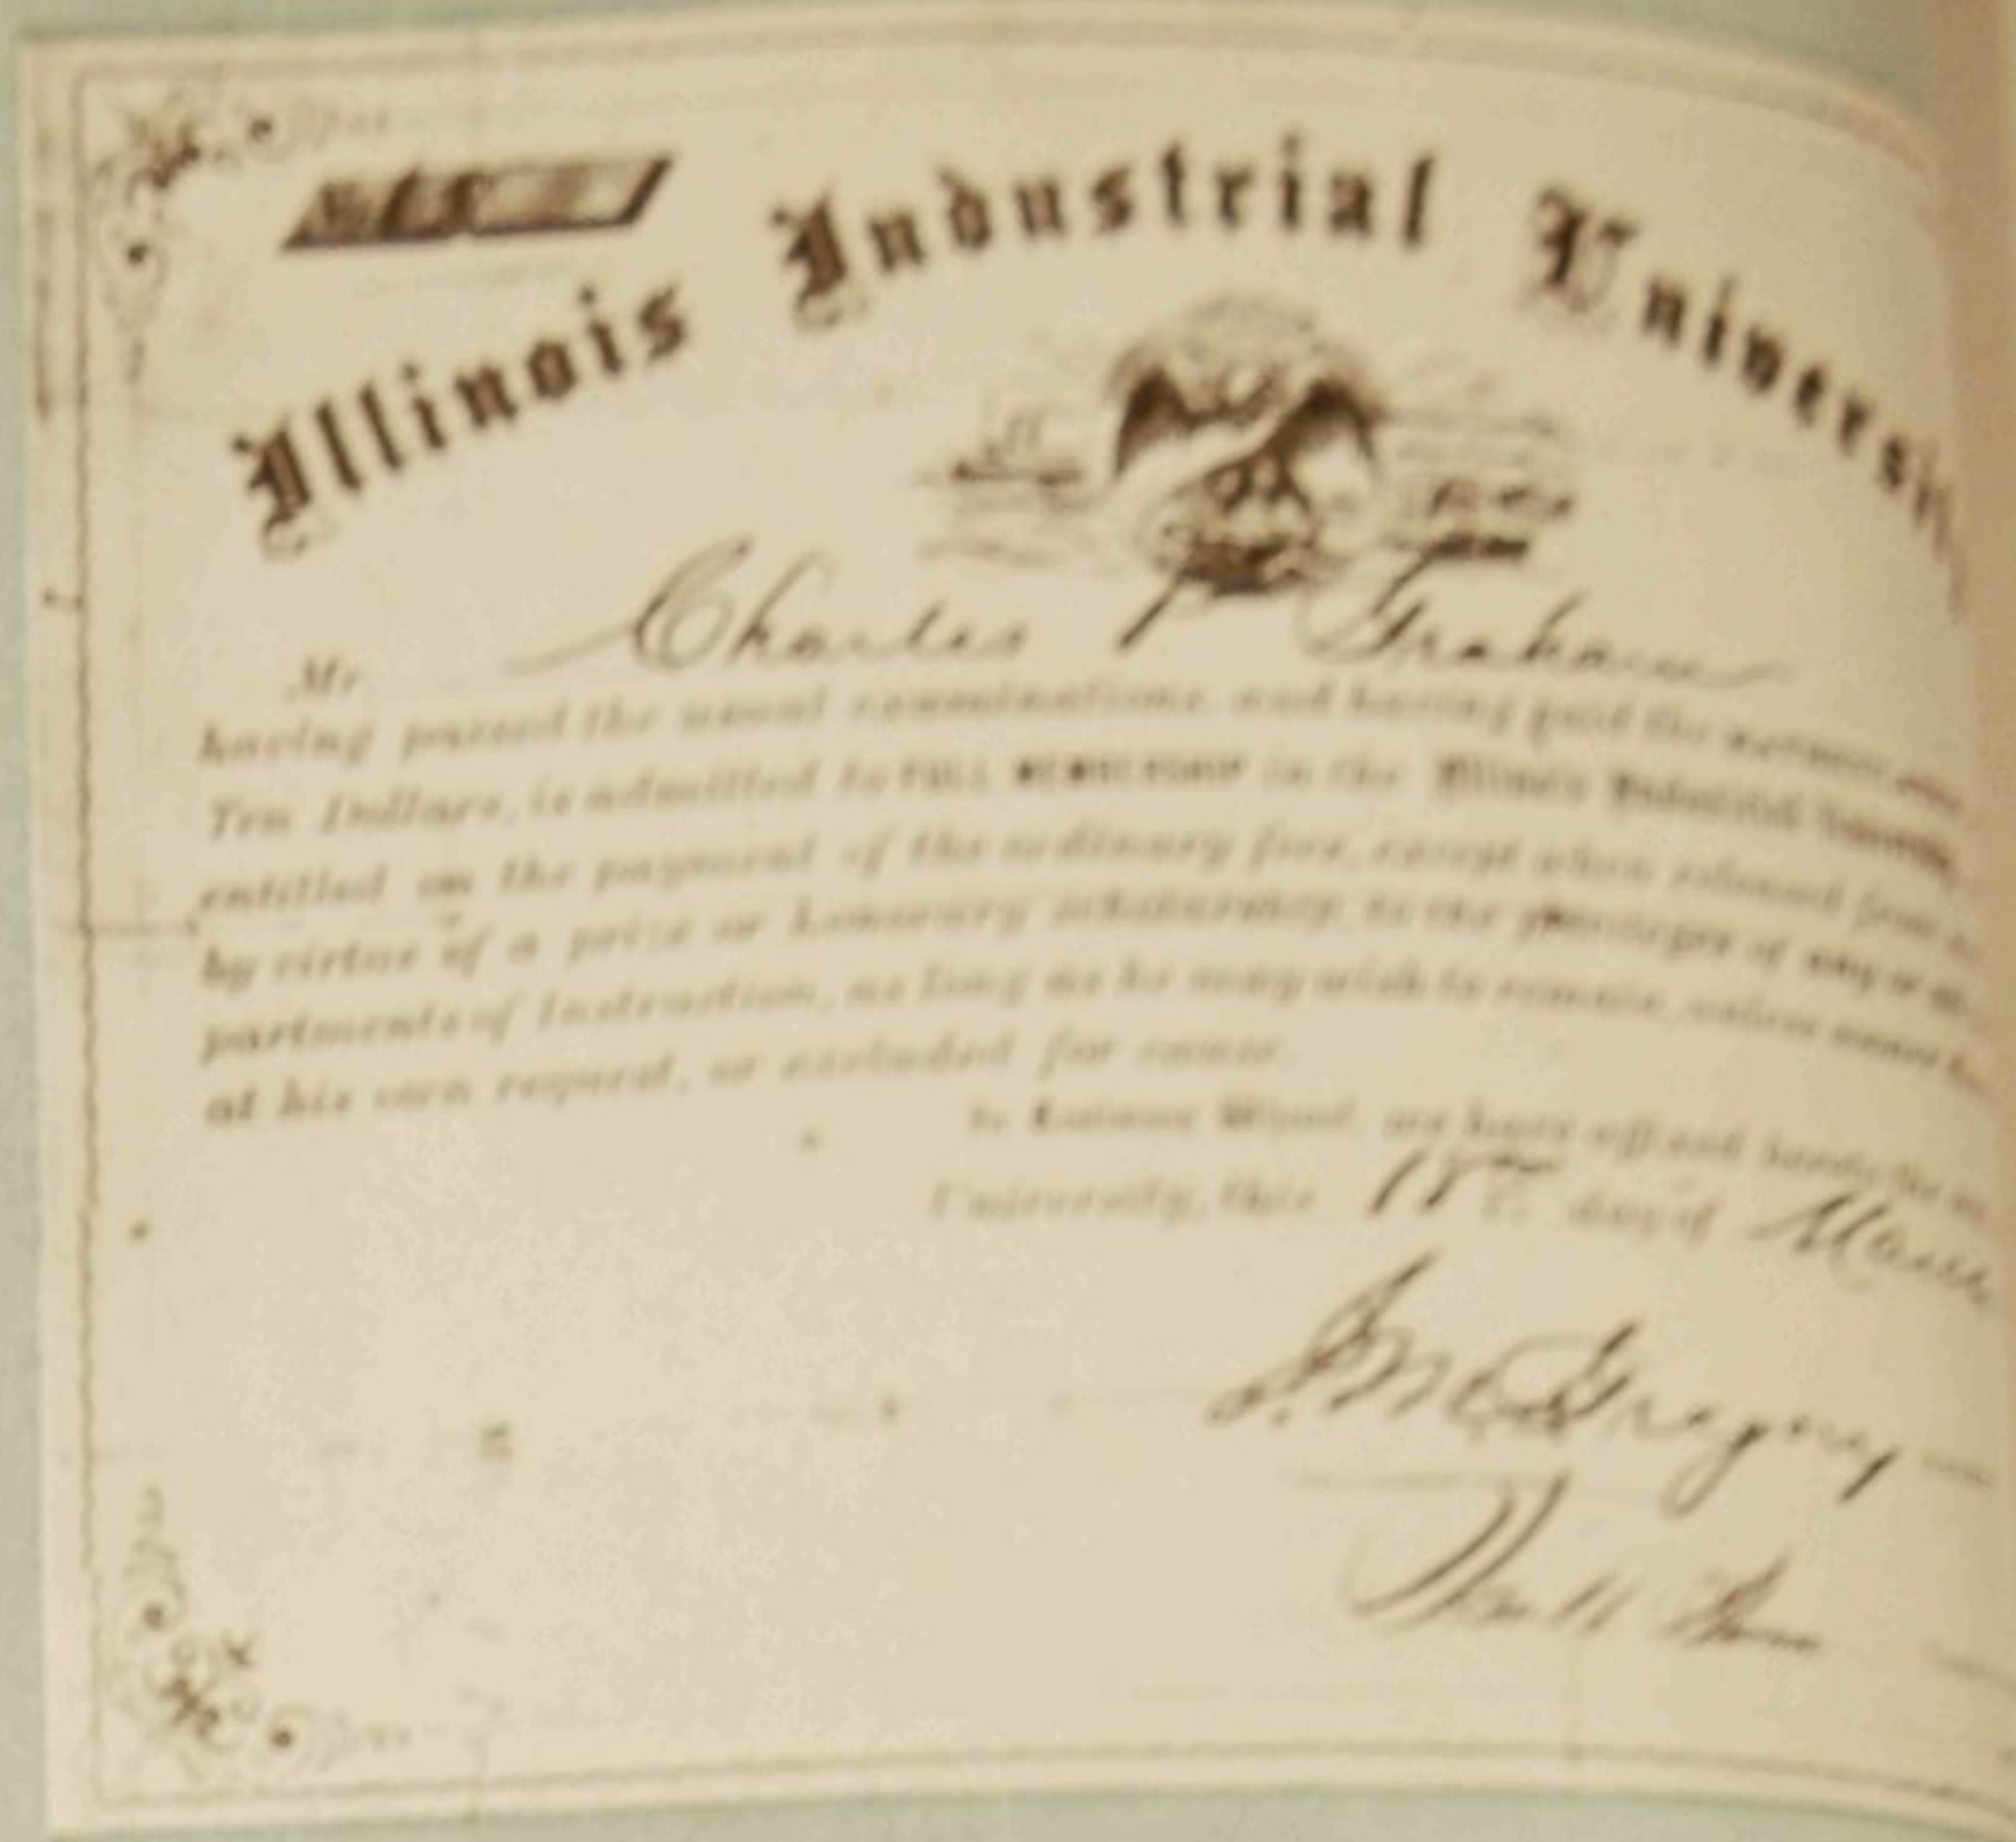 Illinois Industrial Universi
Mr Charles P Graham
having passed the usual examinations, and having paid the
Ten Dollars, is admitted to FULL MEMBERSHIP in the Illinois Industrial
entitled on the payment of the ordinary fees, except when released from
by virtue of a prize or honorary scholarship, to the privileges of any or
partments of Instruction, as long as he may wish to remain, unless
at his own request, or excluded for cause.
In Witness we have affixed
University, this 18th day of March
J. M. Gregory